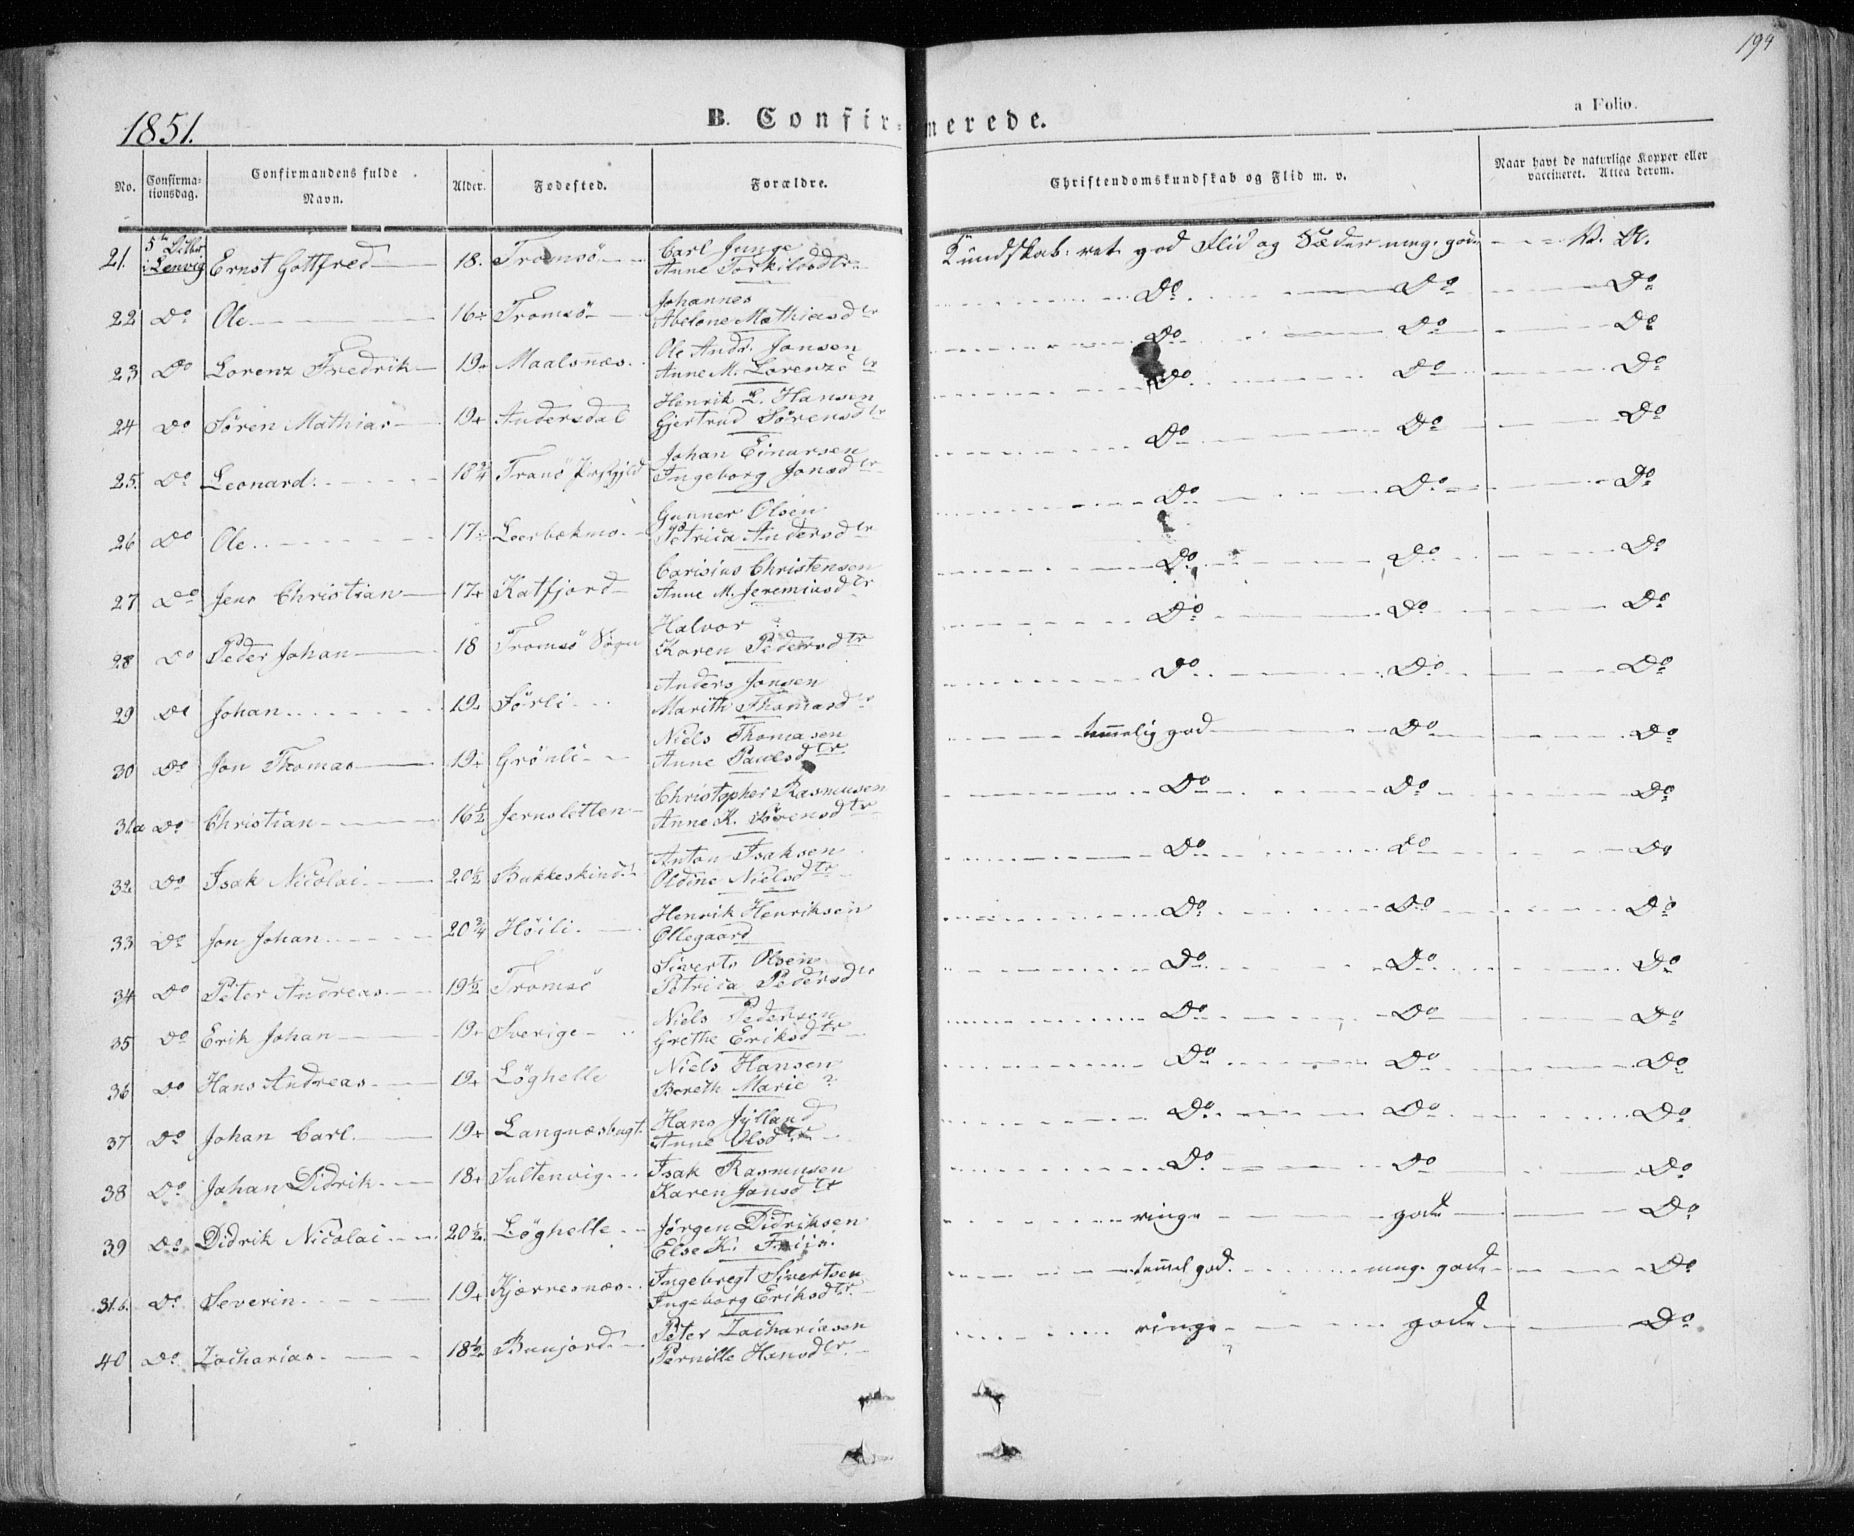 194
1851.
B. Confirmerede.
a Folio.
No. Confirmationsdag. Confirmandens fulde Navn. Alder. Fodested. Forældre. Christendomskundskab og Flid m. v. Naar havt de naturlige Kopper eller vaccineret. Attest derom.
21. 5te i Lenvig Ernst Gottfred 18. Tromsö Carl Junge
Anne Torkilsdtr Kundskab: ret god Flid og Sæder meg. gode V. A.
22 Do Ole 16 Tromsö Johannes
Abelone Mathiasdtr Do Do Do
23 Do Lorenz Fredrik 19 Maalsnæs Ole Andr. Jansen
Anne M. Lorenzdtr Do Do Do
24 Do Sören Mathias 19 Andersdal Henrik L. Hansen
Gjertrud Sörensdtr Do Do Do
25. Do Leonard 18 3/4 Tranö Johan Einarsen
Ingeborg Jonsdtr Do Do Do
26 Do Ole 17 Leerbækmo Gunner Olsen
Petrica Andersdtr Do Do Do
27 Do Jens Christian 17 Katfjord Carisius Christensen
Anne M. Jeremiasdtr Do Do Do
28 Do Peder Johan 18 Tromsö Sogn Halvor ?
Karen Pedersdtr Do Do Do
29 Do Johan 19 Sörli Anders Jonsen
Marith Thomasdtr Do Do Do
30 Do Jon Thomas 19 Grönli Niels Thomasen
Anne Paulsdtr temmelig god Do Do
31.a Do Christian 16 1/2 Jernsletten Christopher Rasmusen
Anne K. Sörensdtr Do Do Do
32 Do Isak Nicolai 20 1/2 Bakkeskind Anton Isaksen
Oldine Nielsdtr Do Do Do
33 Do Jon Johan 20 3/4 Höili Henrik Henriksen
Ollegaard Do Do Do
34 Do Peter Andreas 19 1/2 Tromsö Siverts Olsen
Petrica Pedersdtr Do Do Do
35 Do Erik Johan 19 Sverige Niels Pedersen
Grethe Eriksdtr Do Do Do
36 Do Hans Andreas 19 Löghelle Niels Hansen
Bereth Marie ? Do Do Do
37 Do Johan Carl 19 Langnæsbugt. Hans Jylland
Anne Olsdtr Do Do Do
38 Do Johan Didrik 18 Sultenvig Isak Rasmusen
Karen Jonsdtr Do Do Do
39 Do Didrik Nicolai 20 1/2 Löghelle Jörgen Didriksen
Else K. Friis ringe gode Do
31.b. Do Severin 19 Kjærresnæs Ingebregt Sivertsen
Ingeborg Eriksdtr temmel god meg. gode Do
40 Do Zacharias 18 1/2 Bunjord Peter Zachariasen
Pernille Hansdtr ringe gode Do